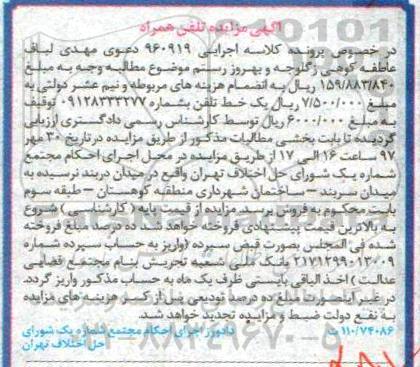 آگهی مزایده تلفن همراه
در خصوص پرونده کلاسه اجرایی ۹۶۰۹۱۹ دعوی مهدی لباف
عاطفه کوهی زگلوجه و بهروز رستم موضوع مطالبه وجه به مبلغ
۱۵۹/۸۸۳/۸۴۰ ریال به انضمام هزینه های مربوطه و نیم عشر دولتی به
مبلغ ۷/۵۰۰/۰۰۰ ریال یک خط تلفن بشماره ۰۹۱۲۸۳۳۳۲۷۷ توقیف
به مبلغ ۶۰۰۰/۰۰۰ ریال توسط کارشناس رسمی دادگستری ارزیابی
گردیده تا بابت بخشی مطالبات مذکور از طریق مزایده در تاریخ ۳۰ مهر
۹۷ ساعت ۱۶ الی ۱۷ از طریق مزایده در محل اجرای احکام مجتمع
شماره یک شورای حل اختلاف تهران واقع در میدان دربند نرسیده به
میدان سربند – ساختمان شهرداری منطقه کوهستان – طبقه سوم
بابت محکوم به فروش برسد مزایده از قیمت پایه (کارشناسی) شروع
به بالاترین قیمت پیشنهادی فروخته خواهد شد ده درصد مبلغ فروخته
شده فی المجلس بصورت قبض سپرده (واریز به حساب سپرده شماره
۲۱۷۱۲۹۹۰۱۳۰۰۹ بانک ملی شعبه تجریش بنام مجتمع قضایی
عدالت) اخذ الباقی بایستی ظرف یک ماه به حساب مذکور واریز گردد.
در غیر اینصورت مبلغ ده درصد تودیعی پس از کسر هزینه های مزایده
به نفع دولت ضبط و مزایده تجدید خواهد شد.
۱۱۰/۷۴۰۸۶ ت دادورز اجرای احکام مجتمع شماره یک شورای
حل اختلاف تهران